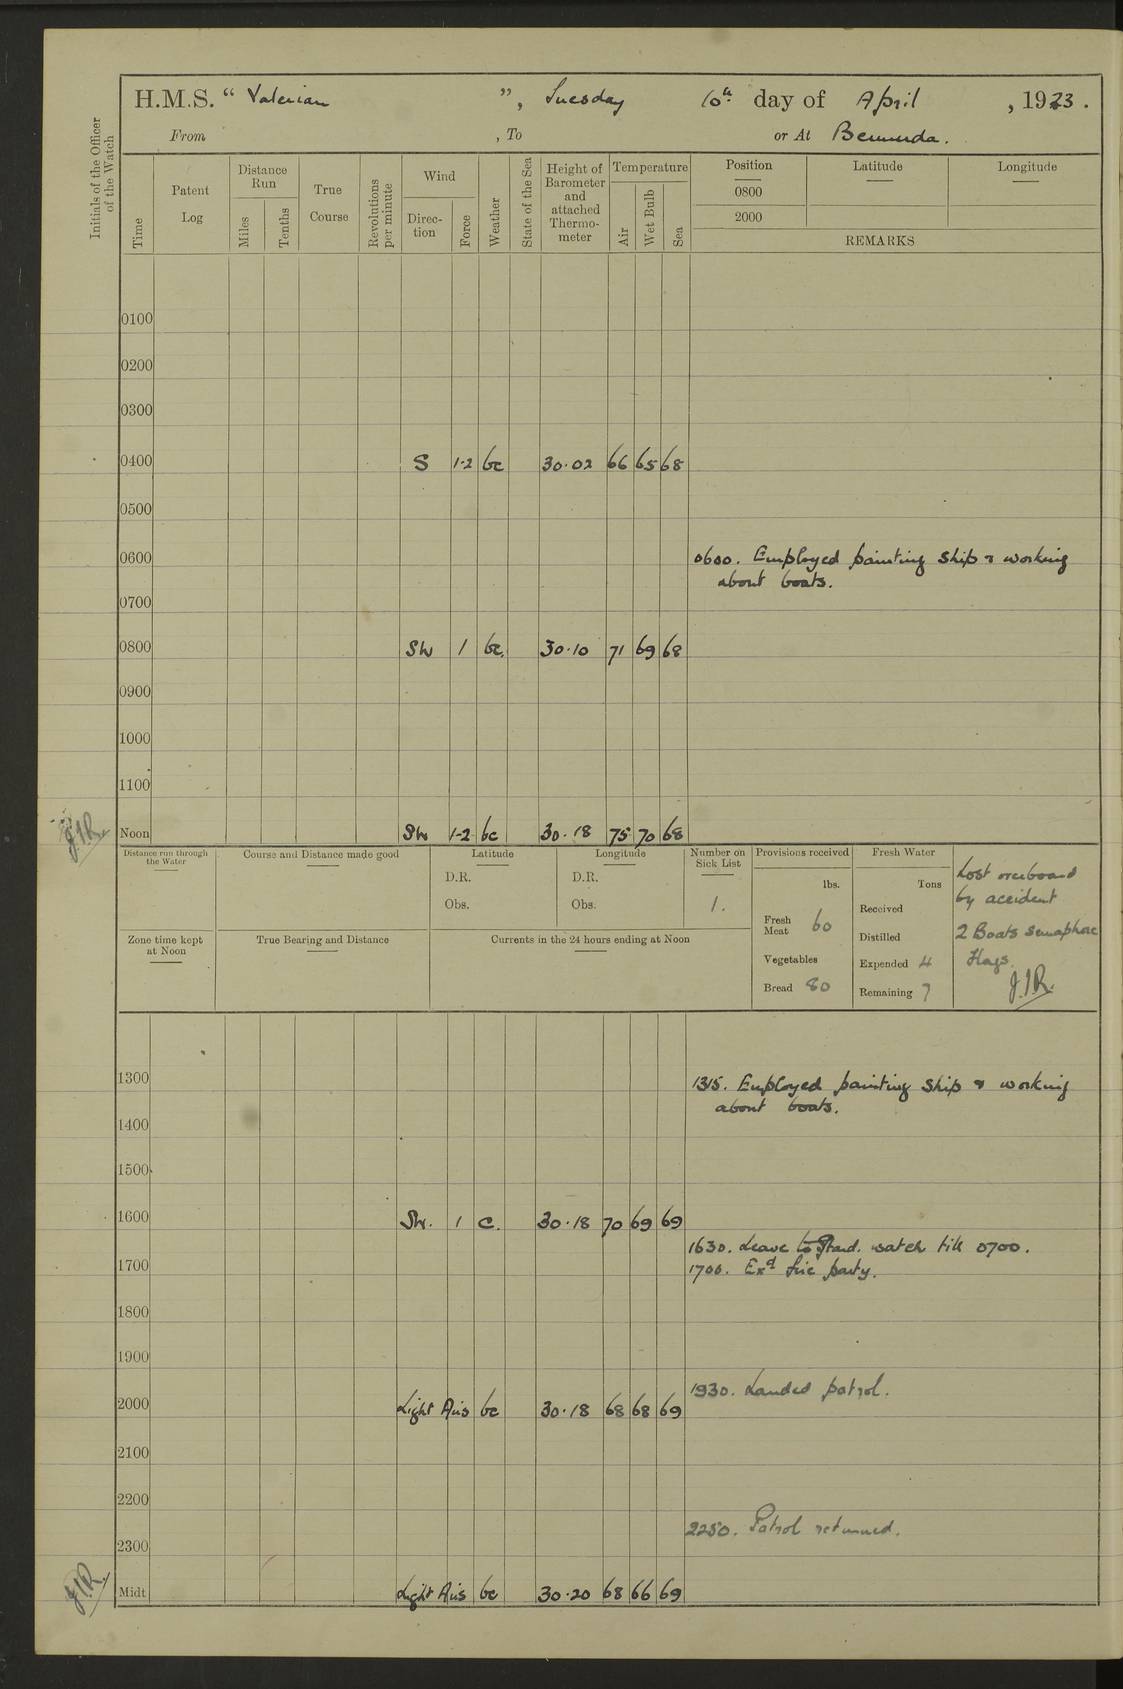 H.M.S. “ Valerian ”, Tuesday 10th day of April , 1923 .
From , To or At Bermuda.
Initials of the Officer of the Watch
Time
Patent Log
Distance Run
Miles
Tenths
True Course
Revolutions per minute
Wind
Direc-tion
Force
Weather
State of the Sea
Height of Barometer and attached Thermo-meter
Temperature
Air
Wet Bulb
Sea
Position
0800
2000
Latitude
Longitude
REMARKS
0100
0200
0300
0400 S 1-2 bc 30.02 66 65 68
0500
0600 0600. Employed painting ship & working
about boats.
0700
0800 SW 1 bc. 30.10 71 69 68
0900
1000
1100
J.I.R. Noon SW 1-2 bc 30.18 75 70 68
Distance run through the Water
Course and Distance made good
Latitude
D.R.
Obs.
Longitude
D.R.
Obs.
Number on Sick List
1.
Provisions received
lbs.
Fresh Meat 60
Vegetables
Bread 80
Fresh Water
Tons
Received
Distilled
Expended 4
Remaining 7
Lost overboard
by accident
2 Boats semaphore
flags.
J.I.R.
Zone time kept at Noon
True Bearing and Distance
Currents in the 24 hours ending at Noon
1300 1315. Employed painting ship & working
about boats.
1400
1500
1600 SW. 1 c. 30.18 70 69 69
1630. Leave to watch till 0700.
1700 1700. Exd fire party.
1800
1900
1930. Landed patrol.
2000 Light Airs bc 30.18 68 68 69
2100
2200
2250. Patrol returned.
2300
J.I.R. Midt Light Airs bc 30.20 68 66 69